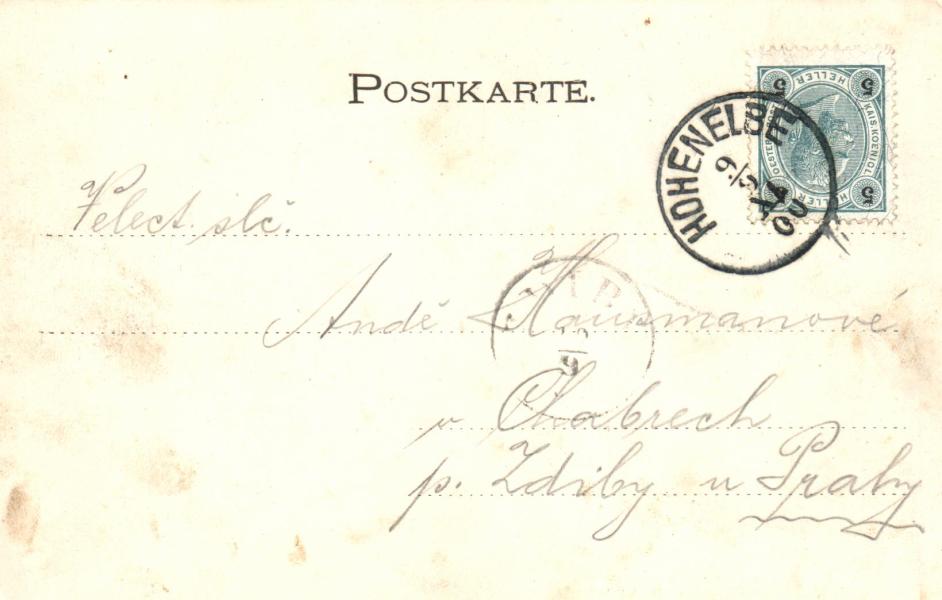 POSTKARTE.
5 HELLER 5
KAIS. KOENIGL.
HELLER 5
HOHENELBE
Velect. slč.
Andě Hausmanové
v Chabrech
p. Zdiby u Prahy